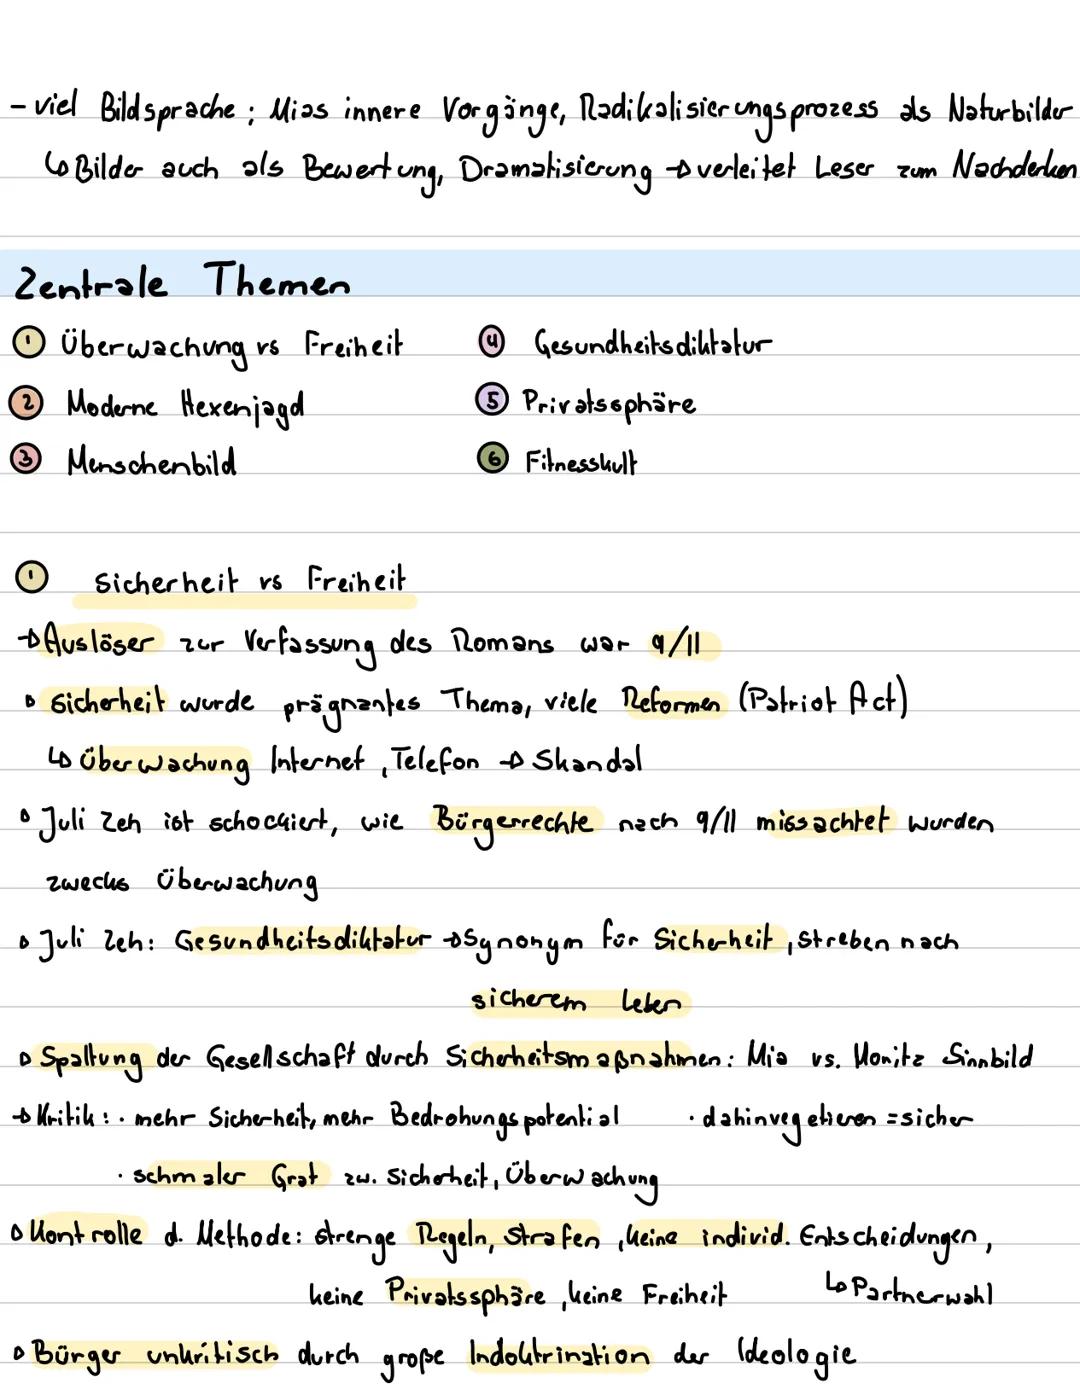 - viel Bildsprache ; Mias innere Vorgänge, Radikalisierungsprozess als Naturbilder
↳ Bilder auch als Bewertung, Dramatisierung → verleitet Leser zum Nachdenken
Zentrale Themen
① Überwachung vs Freiheit ④ Gesundheitsdiktatur
② Moderne Hexenjagd ⑤ Privatssphäre
③ Menschenbild ⑥ Fitnesskult
① Sicherheit vs Freiheit
→ Auslöser zur Verfassung des Romans war 9/11
▹ Sicherheit wurde prägnantes Thema, viele Reformen (Patriot Act)
↳ Überwachung Internet, Telefon → Skandal
▹ Juli Zeh ist schockiert, wie Bürgerrechte nach 9/11 missachtet wurden
zwecks Überwachung
▹ Juli Zeh: Gesundheitsdiktatur → Synonym für Sicherheit, streben nach
sicherem Leben
▹ Spaltung der Gesellschaft durch Sicherheitsmaßnahmen: Mia vs. Moritz Sinnbild
→ Kritik: · mehr Sicherheit, mehr Bedrohungspotential · dahinvegetieren = sicher
· schmaler Grat zw. Sicherheit, Überwachung
▹ Kontrolle d. Methode: strenge Regeln, Strafen, keine individ. Entscheidungen,
keine Privatssphäre, keine Freiheit ↳ Partnerwahl
▹ Bürger unkritisch durch große Indoktrination der Ideologie